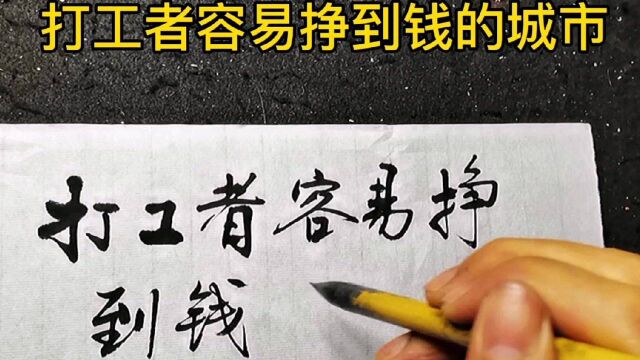 打工者容易挣到钱的城市
打工者容易挣
到钱